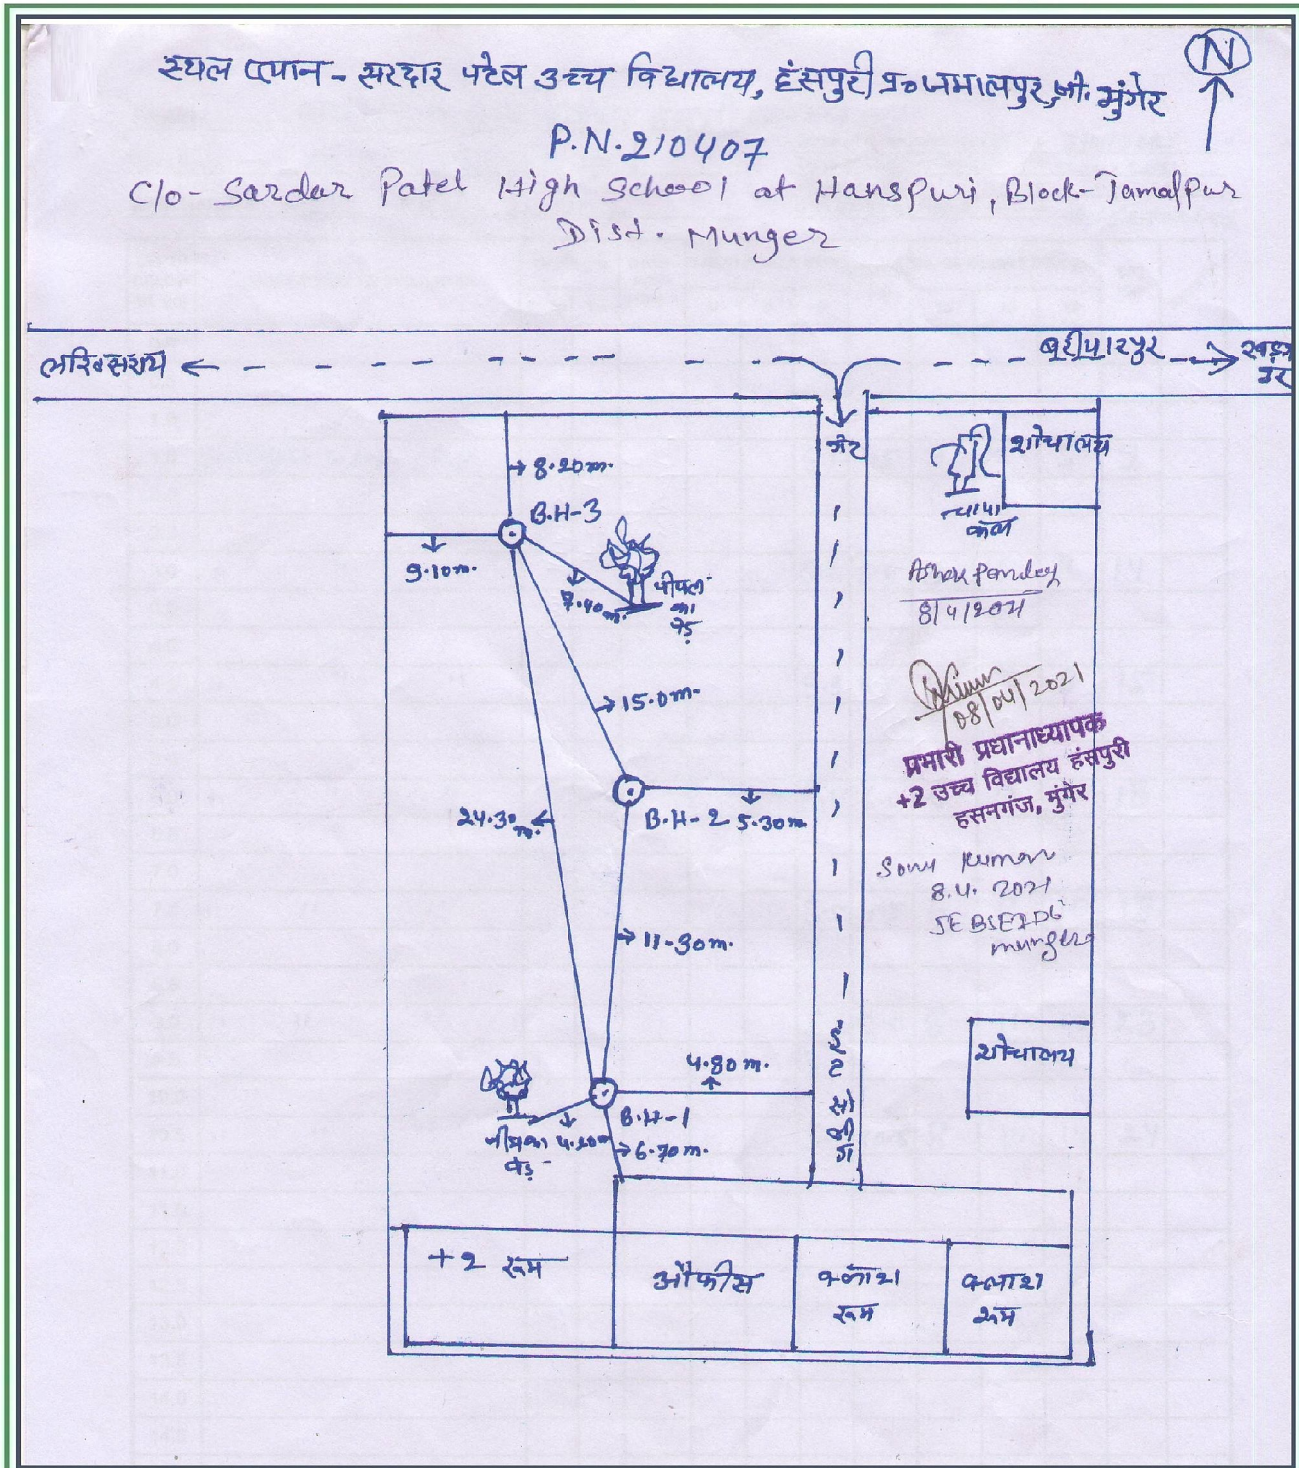 स्थल प्लान - सरदार पटेल उच्च विद्यालय, हंसपुरी, प्र० जमालपुर, जी. मुंगेर
N
P.N. 210407
C/o - Sardar Patel High School at Hanspuri, Block - Jamalpur
Dist. Munger
बरीयारपुर
गेट
शौचालय
8.20m.
B.H-3
9.10m.
7.40m.
पीपल
का
पेड़
चापा
कल
Ashok Pandey
8/4/2021
08/04/2021
प्रभारी प्रधानाध्यापक
+2 उच्च विद्यालय हंसपुरी
हसनगंज, मुंगेर
15.0m.
24.30m.
B.H-2
5.30m
Sonu Kumar
8.4.2021
JE BSEIDC
munger
11-30m.
ईट सोलींग
शौचालय
4.80m.
B.H-1
नीमका
पेड़
4.20m
6.70m.
+2 रूम
औफीस
क्लाश
रूम
क्लाश
रूम